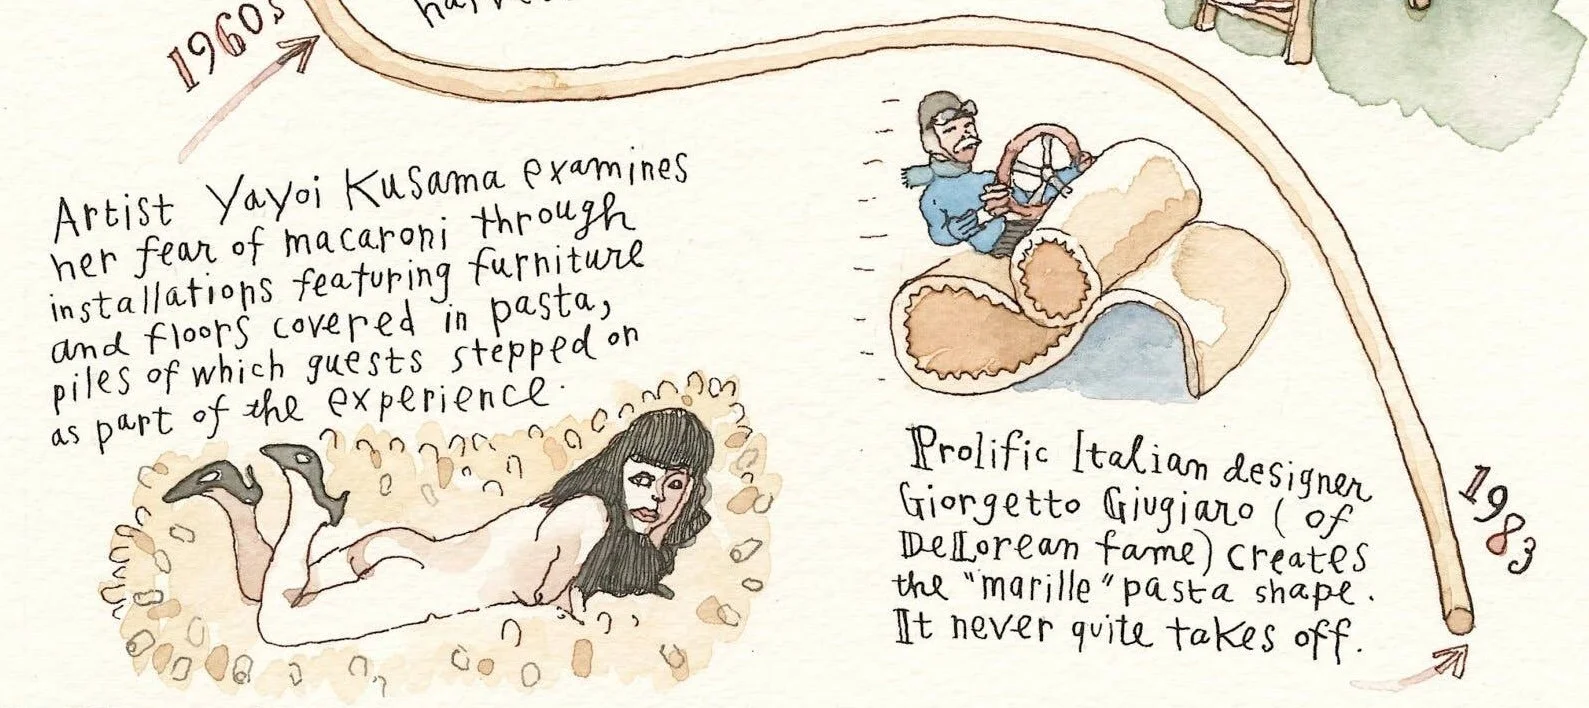 1960s
Artist Yayoi Kusama examines
her fear of macaroni through
installations featuring furniture
and floors covered in pasta,
piles of which guests stepped on
as part of the experience.
Prolific Italian designer
Giorgetto Giugiaro (of
DeLorean fame) creates
the "marille" pasta shape.
It never quite takes off.
1983